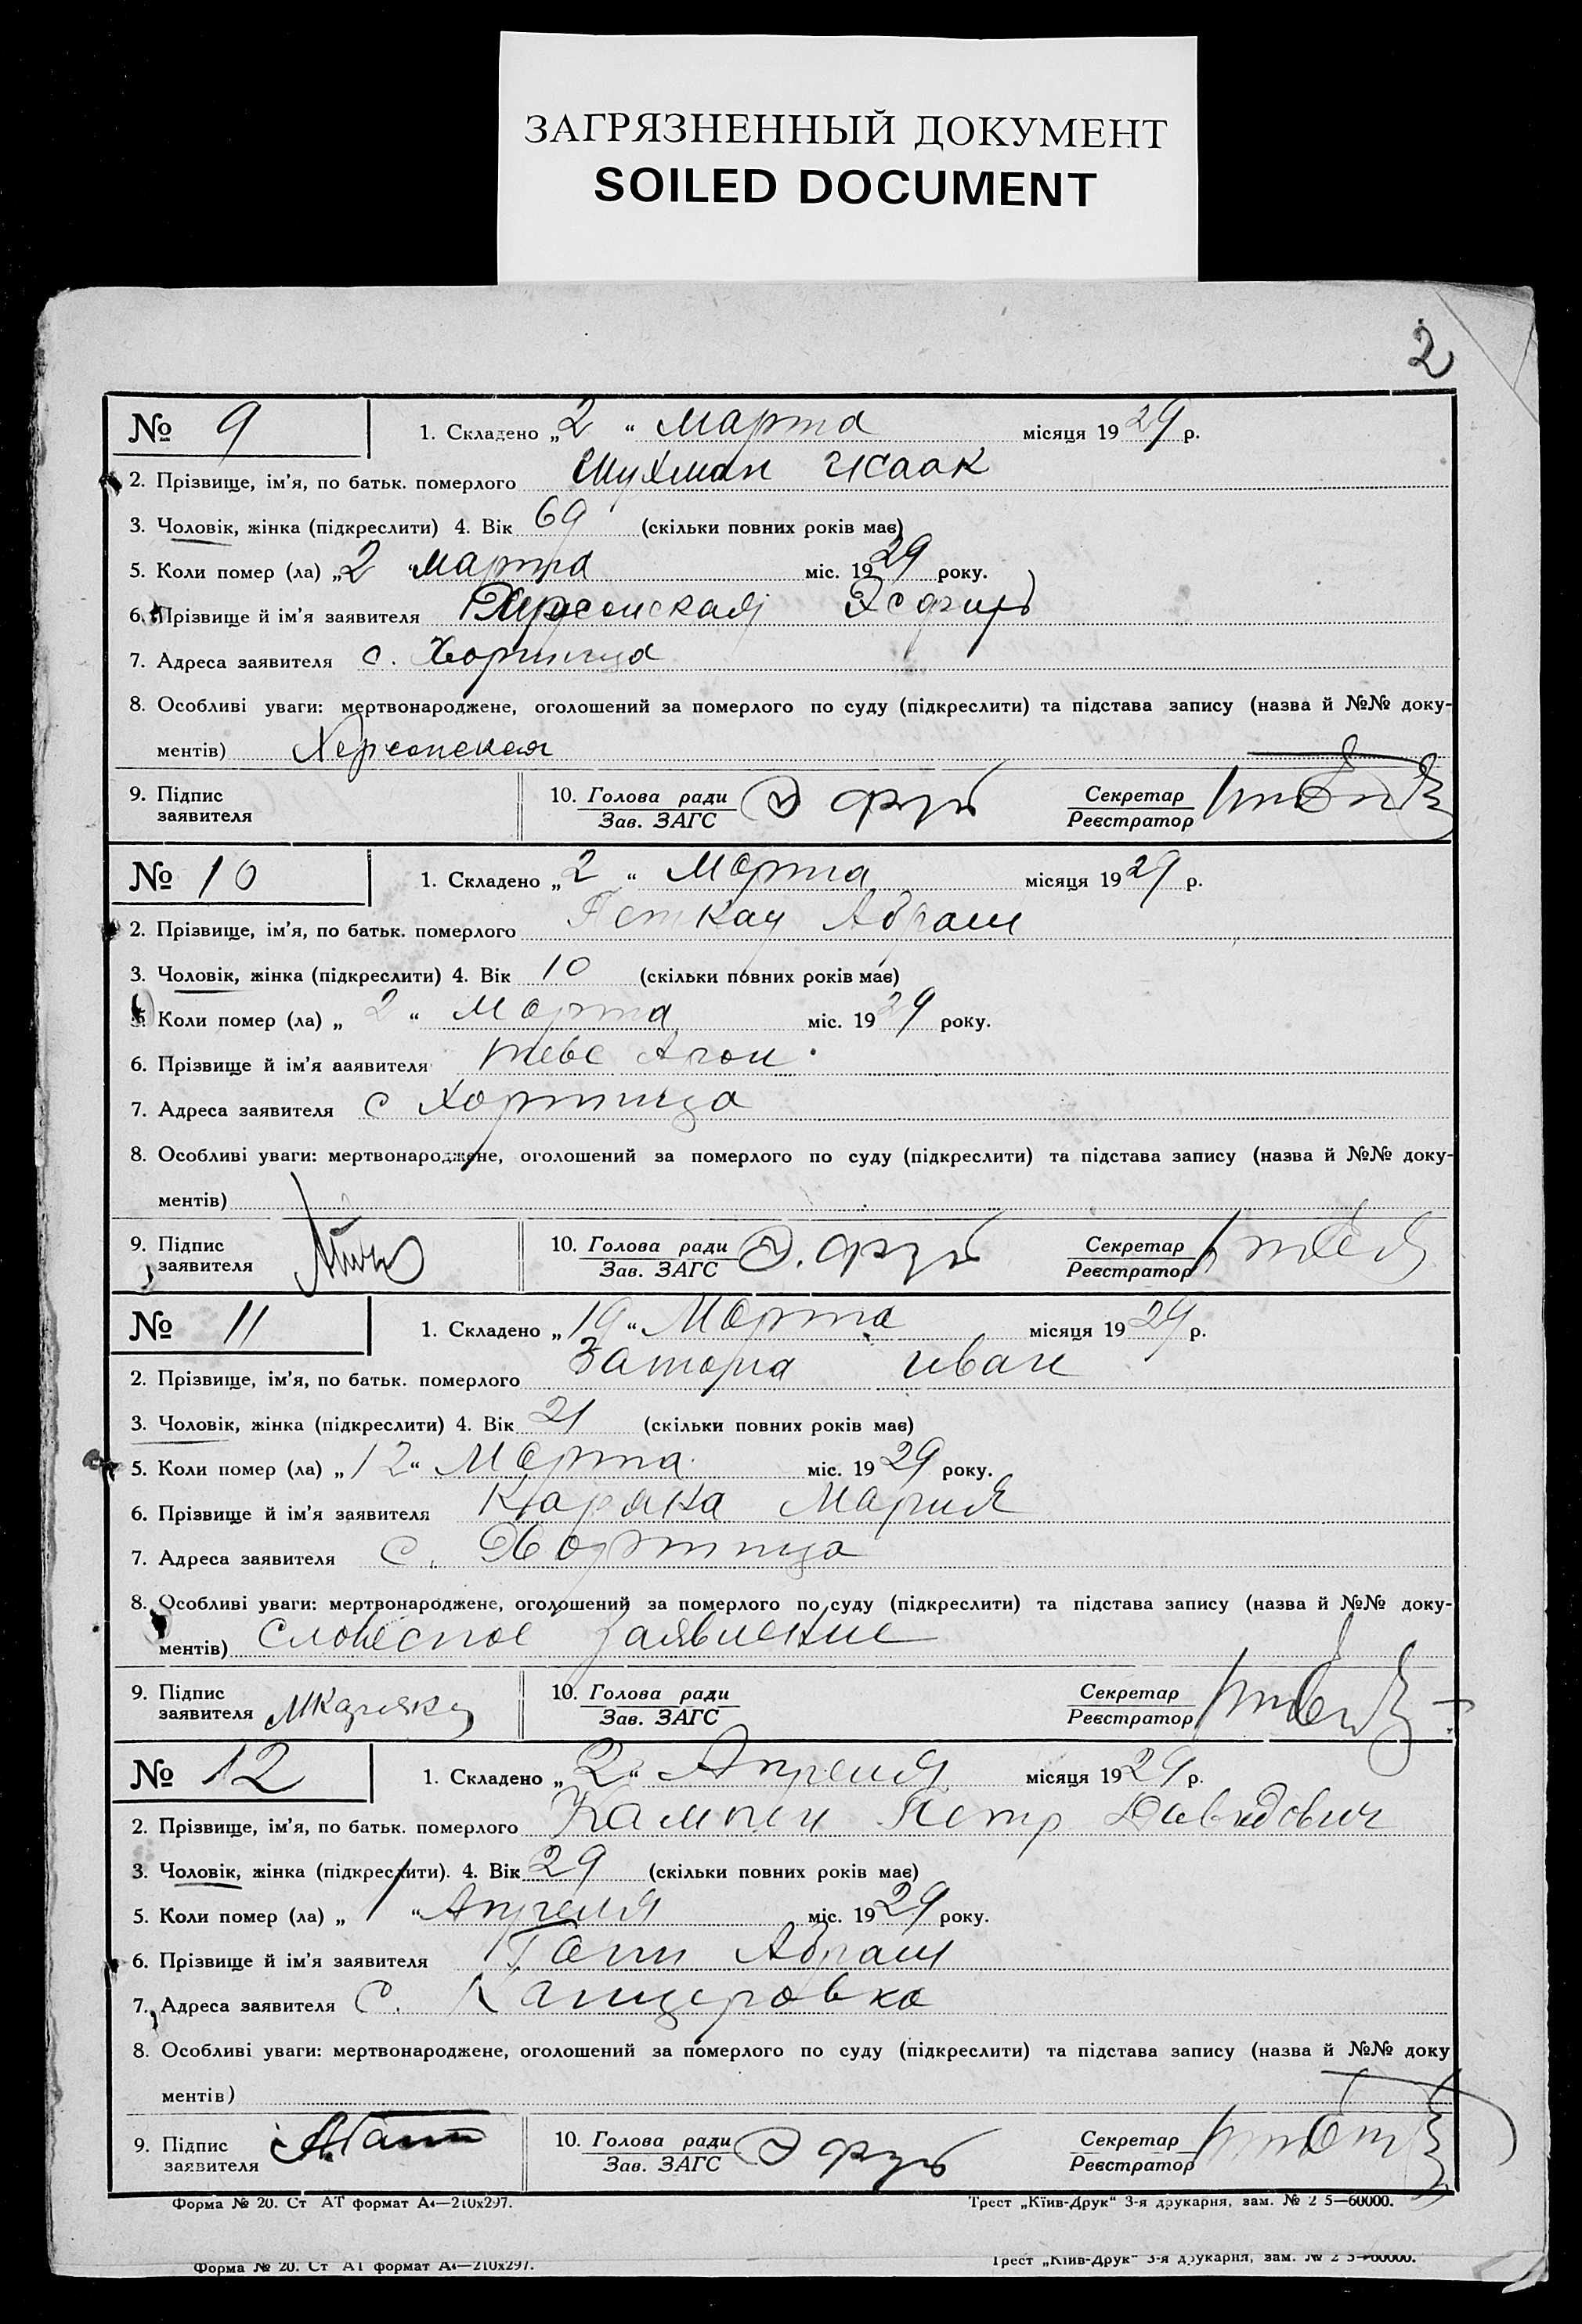 ЗАГРЯЗНЕННЫЙ ДОКУМЕНТ
SOILED DOCUMENT
2
№ 9 1. Складено „2“ Марта місяця 1929 р.
2. Прізвище, ім'я, по батьк. померлого Шухман Исаак
3. Чоловік, жінка (підкреслити) 4. Вік 69 (скільки повних років має)
5. Коли помер (ла) „2“ Марта міс. 1929 року.
6. Прізвище й ім'я заявителя Херсонская Эсфирь
7. Адреса заявителя с. Хортица
8. Особливі уваги: мертвонароджене, оголошений за померлого по суду (підкреслити) та підстава запису (назва й №№ доку-
ментів) Херсонская
9. Підпис заявителя 10. Голова ради Зав. ЗАГС Секретар Реєстратор
№ 10 1. Складено „2“ Марта місяця 1929 р.
2. Прізвище, ім'я, по батьк. померлого Петкау Абрам
3. Чоловік, жінка (підкреслити) 4. Вік 10 (скільки повних років має)
5. Коли помер (ла) „2“ Марта міс. 1929 року.
6. Прізвище й ім'я ааявителя
7. Адреса заявителя с Хортица
8. Особливі уваги: мертвонароджене, оголошений за померлого по суду (підкреслити) та підстава запису (назва й №№ доку-
ментів)
9. Підпис заявителя 10. Голова ради Зав. ЗАГС Секретар Реєстратор
№ 11 1. Складено „19“ Марта місяця 1929 р.
2. Прізвище, ім'я, по батьк. померлого Затора Иван
3. Чоловік, жінка (підкреслити) 4. Вік 21 (скільки повних років має)
5. Коли помер (ла) „12“ Марта міс. 1929 року.
6. Прізвище й ім'я заявителя Каряка Мария
7. Адреса заявителя с. Хортица
8. Особливі уваги: мертвонароджене, оголошений за померлого по суду (підкреслити) та підстава запису (назва й №№ доку-
ментів) Словесное заявление
9. Підпис заявителя МКаряка 10. Голова ради Зав. ЗАГС Секретар Реєстратор
№ 12 1. Складено „2“ Апреля місяця 1929 р.
2. Прізвище, ім'я, по батьк. померлого Кампен Петр Давидович
3. Чоловік, жінка (підкреслити). 4. Вік 29 (скільки повних років має)
5. Коли помер (ла) „1“ Апреля міс. 1929 року.
6. Прізвище й ім'я заявителя Ганн Абрам
7. Адреса заявителя С. Канцеровка
8. Особливі уваги: мертвонароджене, оголошений за померлого по суду (підкреслити) та підстава запису (назва й №№ доку
ментів)
9. Підпис заявителя А.Ганн 10. Голова ради Зав. ЗАГС Секретар Реєстратор
Форма № 20. Ст АТ формат А4—210х297. Трест „Київ-Друк“ 3-я друкарня, зам. № 2 5—60000.
Форма № 20. Ст АТ формат А4—210х297. Трест „Київ-Друк“ 3-я друкарня, зам. № 2 5—60000.